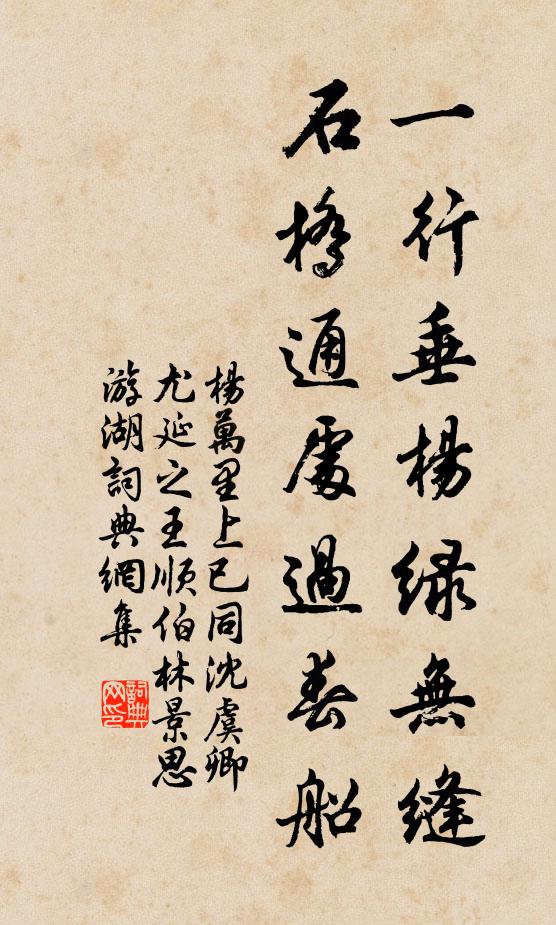 一行垂楊緑無縫
石橋通處過春船
楊萬里上巳同沈虞卿
尤延之王順伯林景思
游湖詞典網集
詞典網印